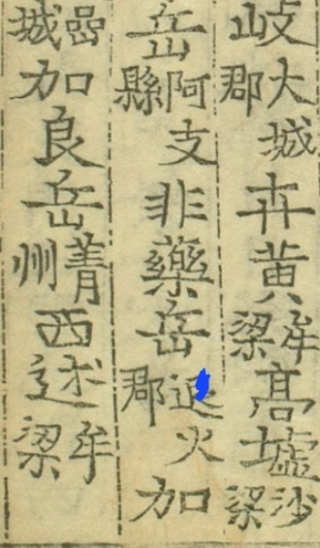 岐大城郡卉黄牟梁高墟沙梁
岳阿支縣非藥岳退火郡加
嵓城加良岳菁州西述牟梁